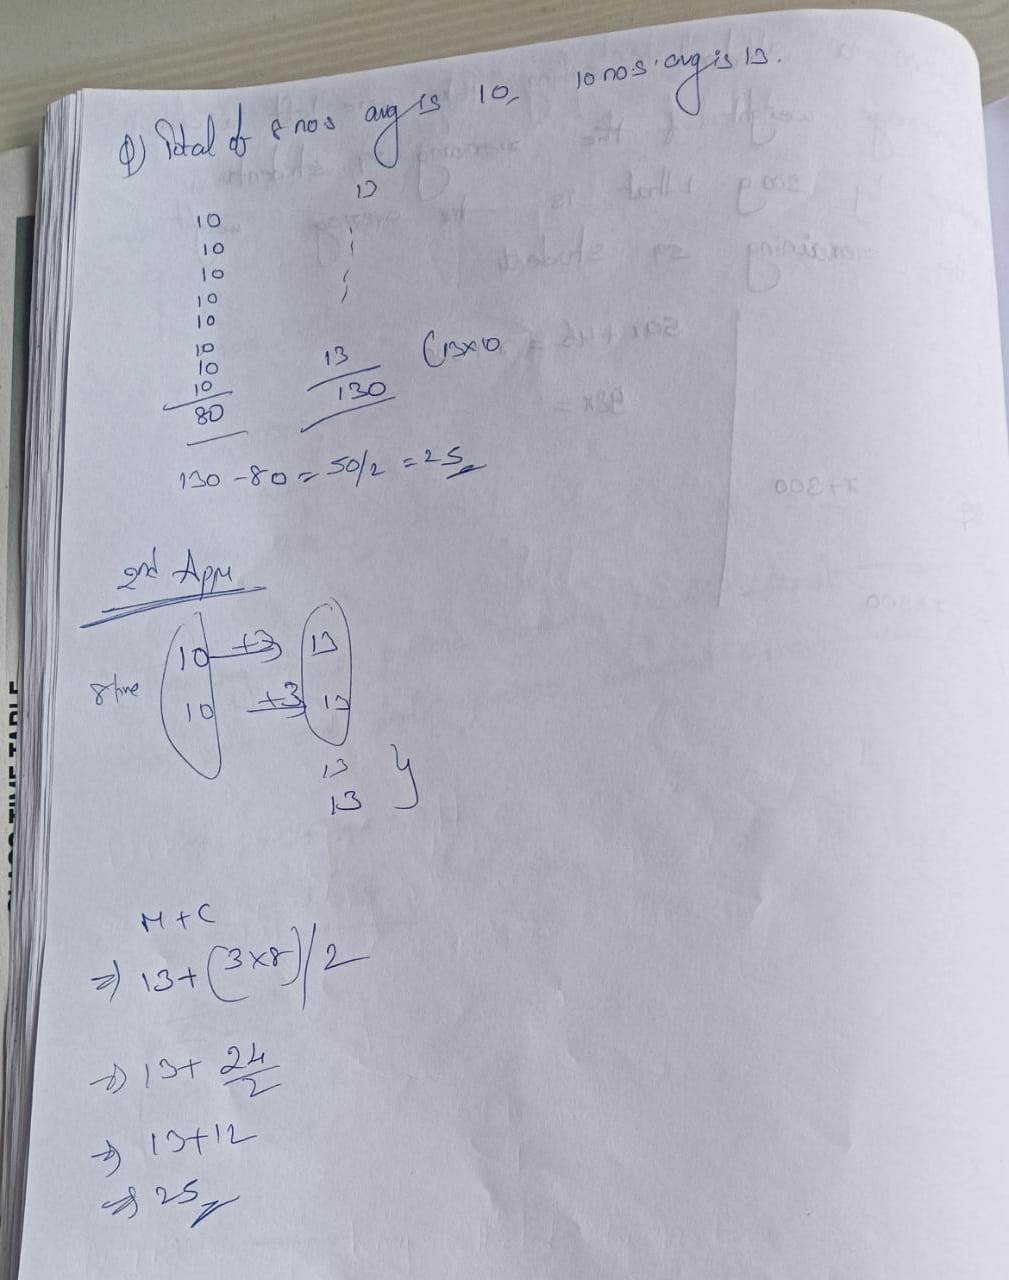 Q) Total of 8 nos avg is 10, 10 nos. avg is 13.
13
10
10
10
10
10
10
10
10
80
13
130
(13x10
130 - 80 = 50/2 = 25
2nd App
8 time
10 +3 13
10 +3 13
13
13
M + C
⇒ 13 + (3x8)/2
⇒ 13 + 24/2
⇒ 13 + 12
⇒ 25